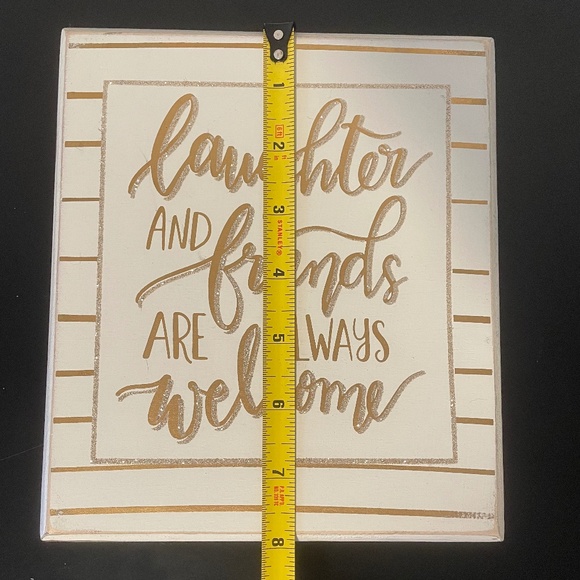 laughter
AND
friends
ARE ALWAYS
welcome
1
2
3
STANLEY®
4
5
6
7
8